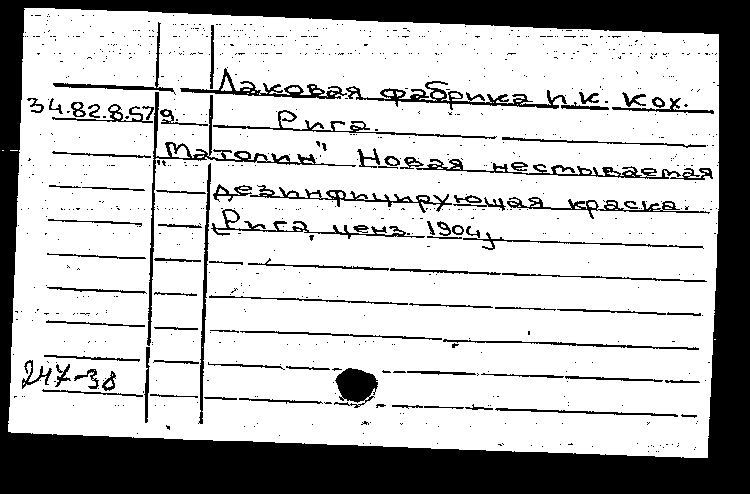 Лаковая фабрика П.К. Кох.
34.82.8.579 Рига.
"Матолин" Новая несмываемая
дезинфицирующая краска.
[Рига, ценз. 1904].
247-38